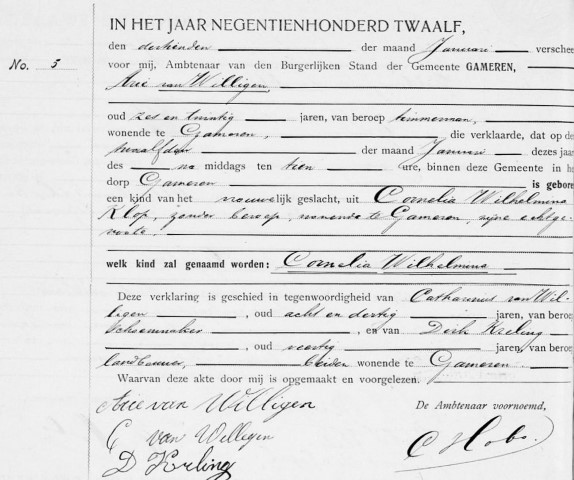 IN HET JAAR NEGENTIENHONDERD TWAALF,
den dertienden der maand Januari verschee
No. 5 voor mij, Ambtenaar van den Burgerlijken Stand der Gemeente GAMEREN,
Arie van Willigen
oud zes en twintig jaren, van beroep timmerman,
wonende te Gameren, die verklaarde, dat op de
twaalfden der maand Januari dezes jaa
des na middags ten tien ure, binnen deze Gemeente in he
dorp Gameren is gebore
een kind van het vrouwelijk geslacht, uit Cornelia Wilhelmina
Klop, zonder beroep, wonende te Gameren, zijne echtge-
noote.
welk kind zal genaamd worden: Cornelia Wilhelmina
Deze verklaring is geschied in tegenwoordigheid van Catharinus van Wil-
ligen jaren, van beroe
schoenmaker, oud acht en dertig, en van Dirk Kreling
, oud veertig jaren, van beroe
landbouwer, beiden wonende te Gameren.
Waarvan deze akte door mij is opgemaakt en voorgelezen.
Arie van Willigen De Ambtenaar voornoemd,
C van Willigen C Hobo.
D Kreling